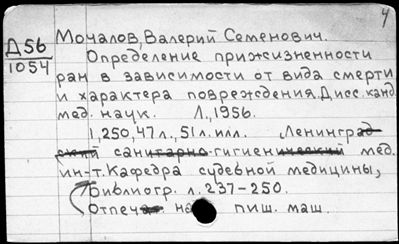 4
Д56
1054
Мочалов, Валерий Семенович.
Определение прижизненности
ран в зависимости от вида смерти
и характера повреждения. Дисс. канд.
мед. наук. Л., 1956.
1, 250, 47 л., 51 л. илл. Ленинград
ский санитарно-гигиенический мед.
ин-т. Кафедра судебной медицины,
Библиогр. л. 237-250.
Отпечат на пиш. маш.